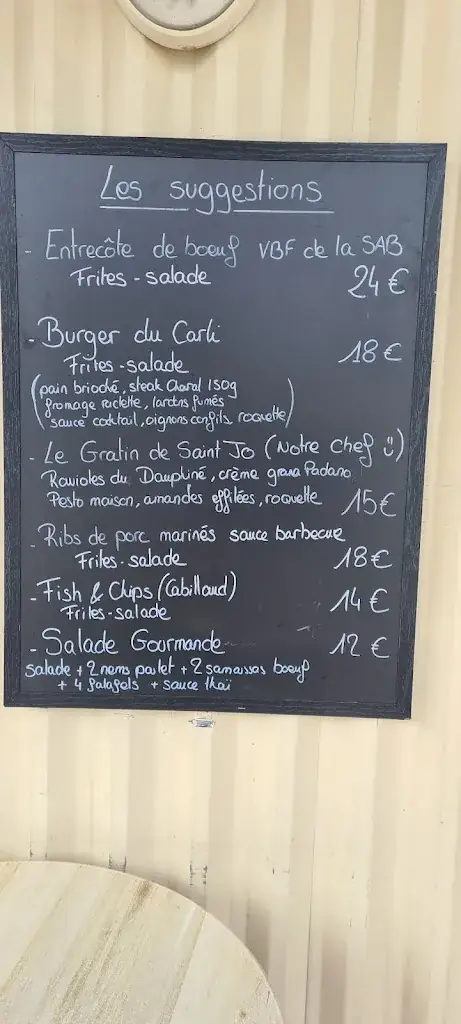 Les suggestions
- Entrecôte de boeuf VBF de la SAB
Frites - salade 24 €
- Burger du Carli
Frites - salade 18 €
(pain brioché, steak Charal 150g
fromage raclette, lardons fumés
sauce cocktail, oignons confits, roquette)
- Le Gratin de Saint Jo (Notre chef ü)
Ravioles du Dauphiné, crème grana Padano
Pesto maison, amandes effilées, roquette 15€
- Ribs de porc marinés sauce barbecue
Frites - salade 18 €
- Fish & Chips (Cabillaud)
Frites - salade 14 €
- Salade Gourmande 12 €
salade + 2 nems poulet + 2 samoussas boeuf
+ 4 falafels + sauce thaï